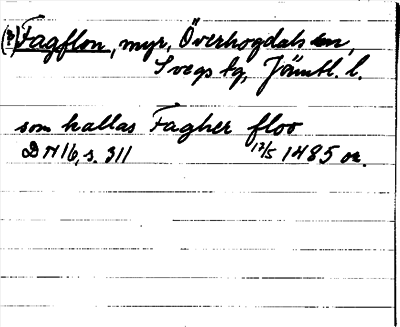 (?) Fagflon, myr, Överhogdals sn,
Svegs tg, Jämtl. l.
som kallas Fagher floo
DN 16, s. 311 17/5 1485 or.